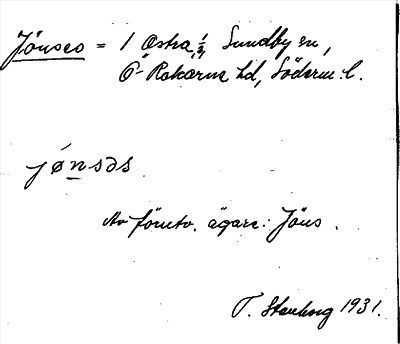 Jönses = 1 Östra ½, Sundby sn,
Ö-Rekarne hd, Söderm. l.
jønsəs
Av företo. ägare: Jöns.
T. Stenberg 1931.